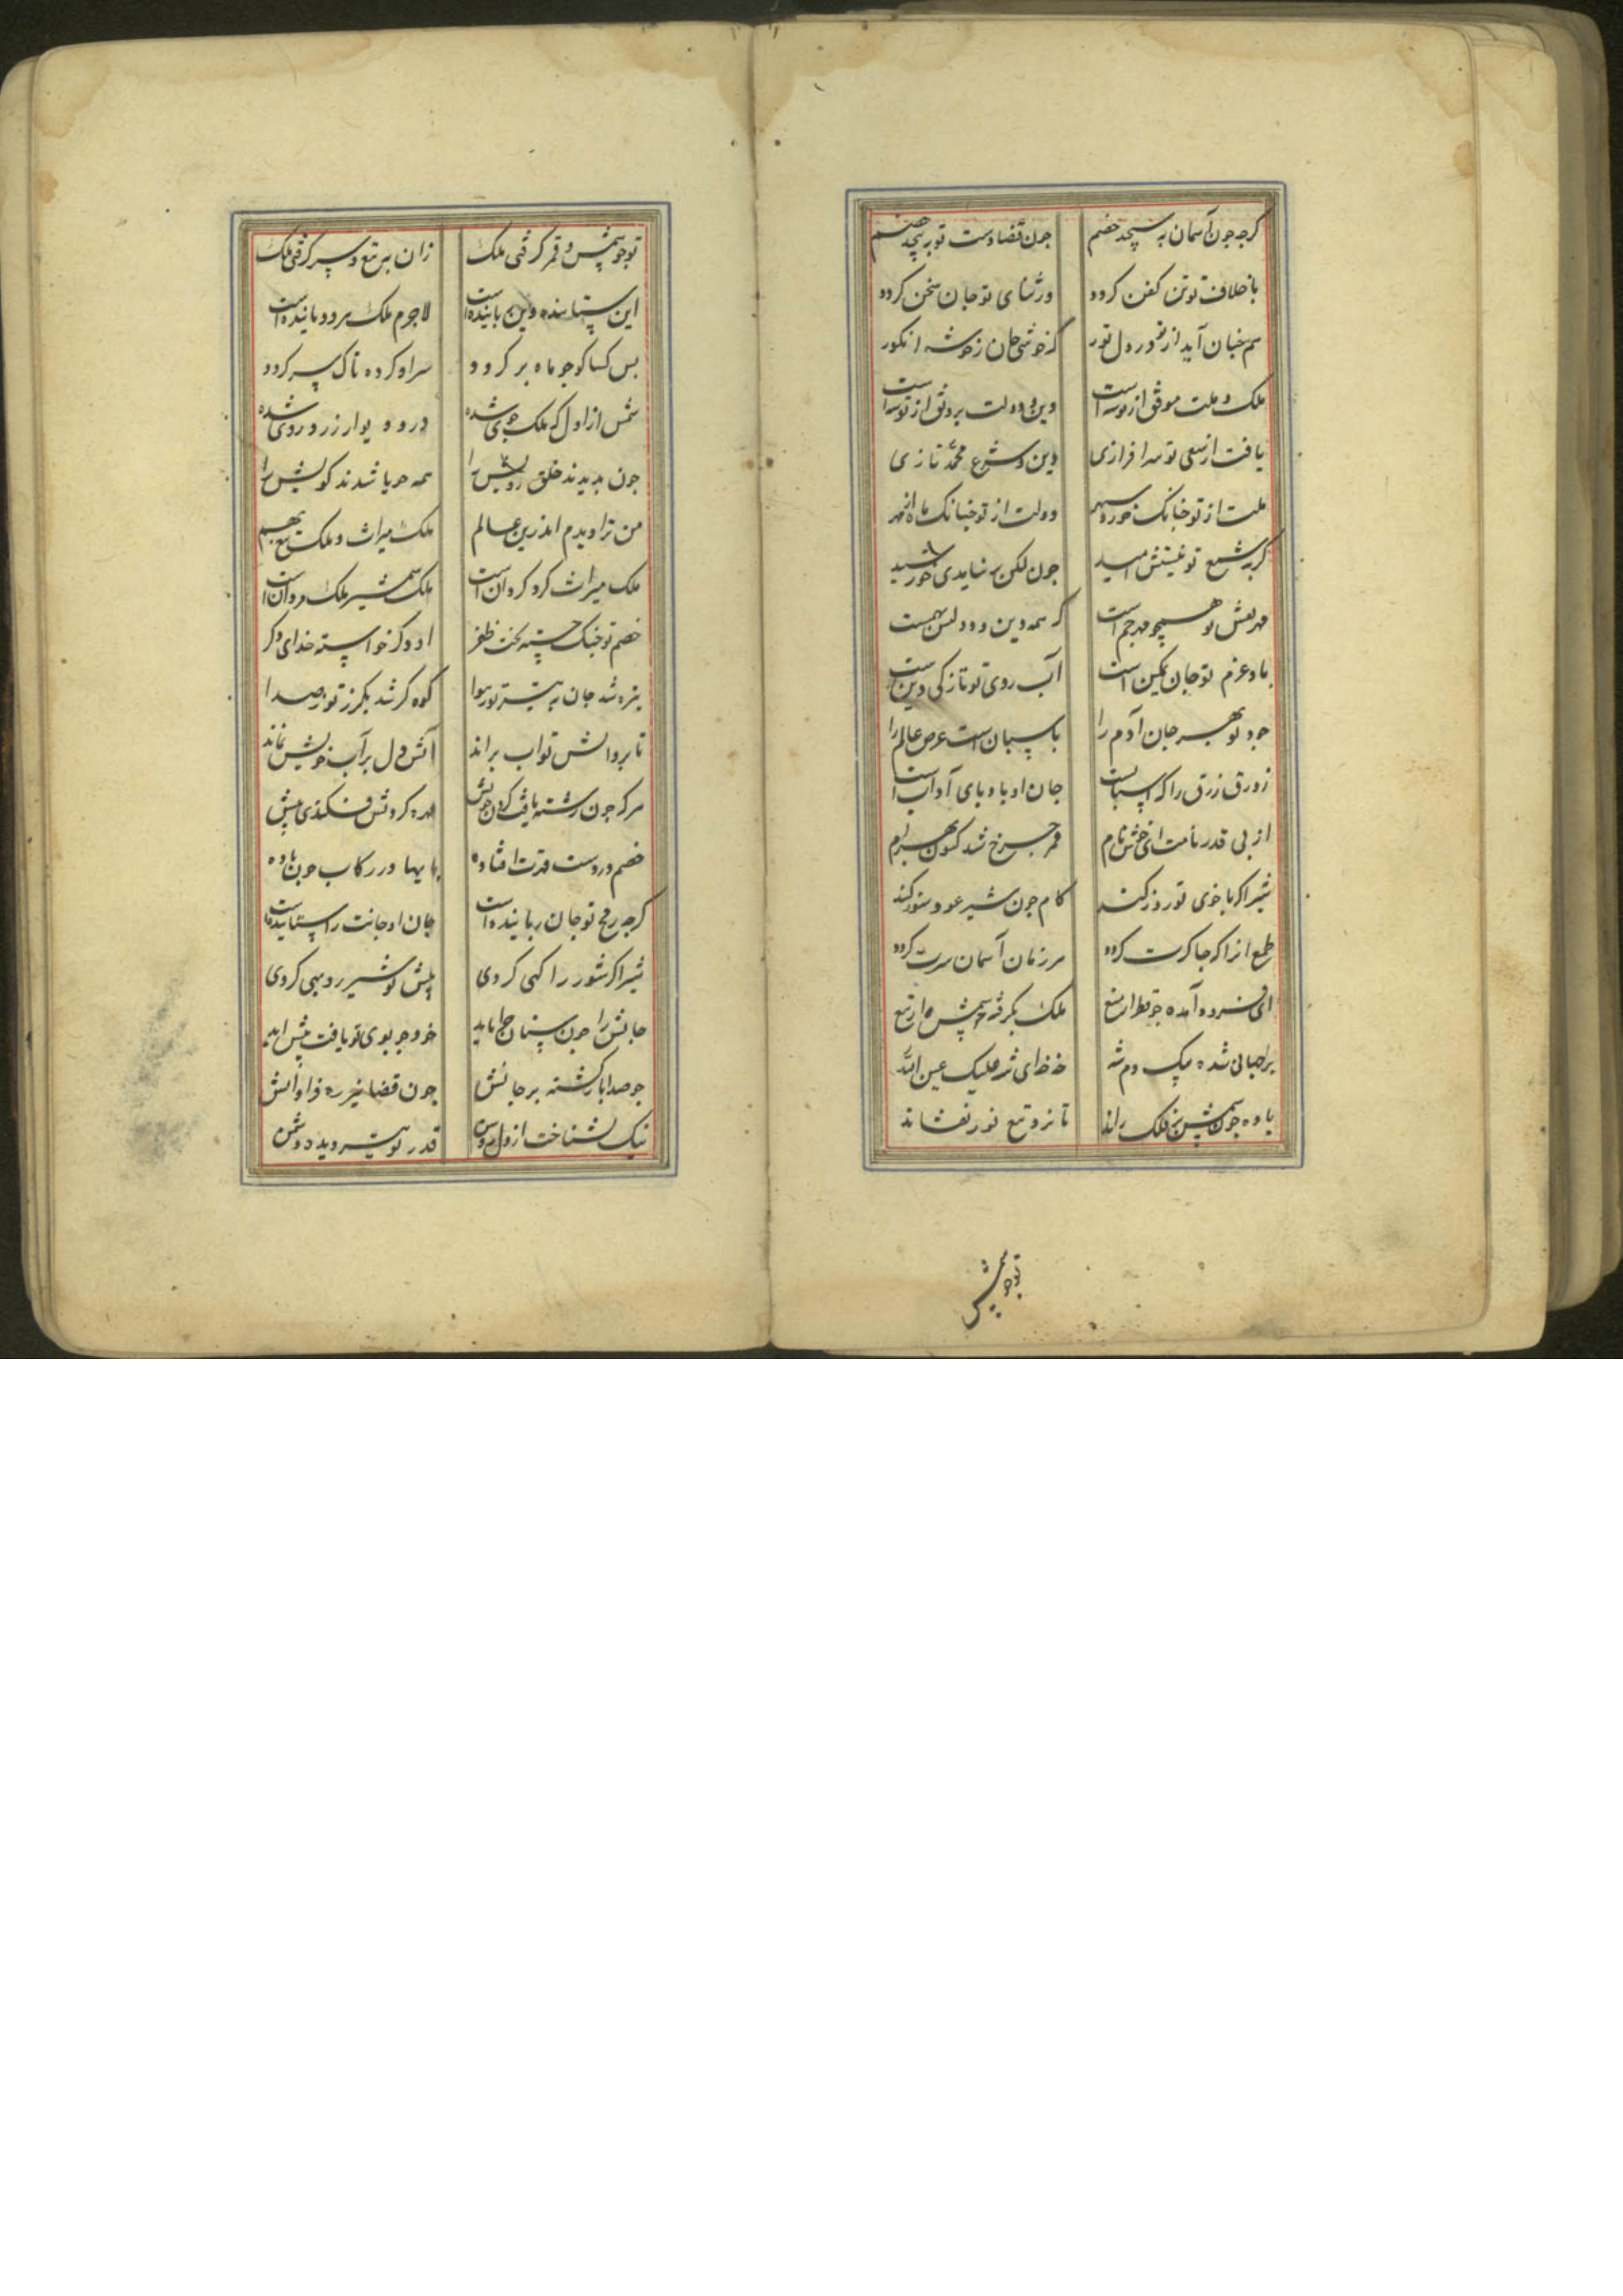 کرچه چون آسمان به پیچد خصم جون قضا دست تو به پیچد خصم
با خلاف تو تن کفن کردد ور ثنای تو جان سخن کردد
سم خبان آید از تو در دل تور که خوشی جان ز خوشه انکور
ملک و ملت موفق از توشه است دین و دولت برونق از توشه است
یافت از سعی تو سرافرازی دین و شرع محمد تازی
ملت از تو چنانک خور ز سپهر دولت از تو چنانک ماه از مهر
کر به شمع تو نیستش امید جون لکن بر نیامدی خورشید
مهر نقش تو همچو مهر جم است که همه دین و دولتش بهم است
باد عزم تو جان تمکین است آب روی تو تازکی دین است
جود تو بهر جان آدم را پاسبان است عرض عالم را
زورق رزق را که اسبابست جان او باد پای آداب است
از پی قدر نامت ای خوش نام قمر چرخ شد کنون بهرام
شیر اکر با خوی تو روز کند کام جون شیر عود سوز کند
طمع از آن اکر جاکرت کردد هر زمان آسمان سرت کردد
ای فرود آمده چو قطر از میغ ملک بکرفته چو شمس از تیغ
بر جهانی شده بیک دم شه خه خه ای شه علیک عین الله
باده چون شمس بر فلک راند تا نزد تیغ نور نفشاند
تو چو شمس
تو چو شمس و قمر کرفتی ملک زان به تیغ و سپر کرفتی ملک
این ستاننده وین پاینده است لاجرم ملک هر دو پاینده است
بس کسا کو چو ماه بر کردد سر او کرد ناک سپر کردد
شمس از اول که ملک جوی شده در و دیوار زرد روی شده
جون بدیدند خلق رویش را همه جویا شدند کویش را
من ترا دیدم اندرین عالم ملک میراث و ملک تیغ بهم
ملک میراث کرد کردان است ملک شمشیر ملک مردان است
خصم تو جنک جسته بخت ظفر او دکر خواسته خدای دکر
نیزه شد جان به تیر تو ز هوا کوه کر شد بکرز تو ز صدا
تا بر و آتش تو آب براند آتش دل بر آب خویش نماند
هر که جون رشته یافت کردن خویش مهره کردنش فکندی پیش
خصم در دست قدرت افتاده پایها در رکاب جون باده
کرچه رمح تو جان رباینده است جان او جانت را ستاینده است
شیر اکر شور را کهی کردی پیش تو شیر روبهی کردی
جانش را جون سنان جراباید خود چو بوی تو یافت پیش آید
جو صدا بازکشته بر جانش جون قضا خیره فراوانش
نیک بشناخت از دل روشن قدر تو تیر دیده دشمن